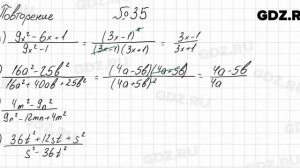 Повторение №35 GDZ.RU
) (9x² - 6x + 1)/(9x² - 1) = (3x - 1)²/((3x - 1)(3x + 1)) = (3x - 1)/(3x + 1)
) (16a² - 25b²)/(16a² + 40ab + 25b²) = (4a - 5b)(4a + 5b)/(4a + 5b)² = (4a - 5b)/4a
(4m² - 9n²)/(9n² - 12mn + 4m²)
) (36t² + 12st + s²)/(s² - 36t²)
GDZ.RU